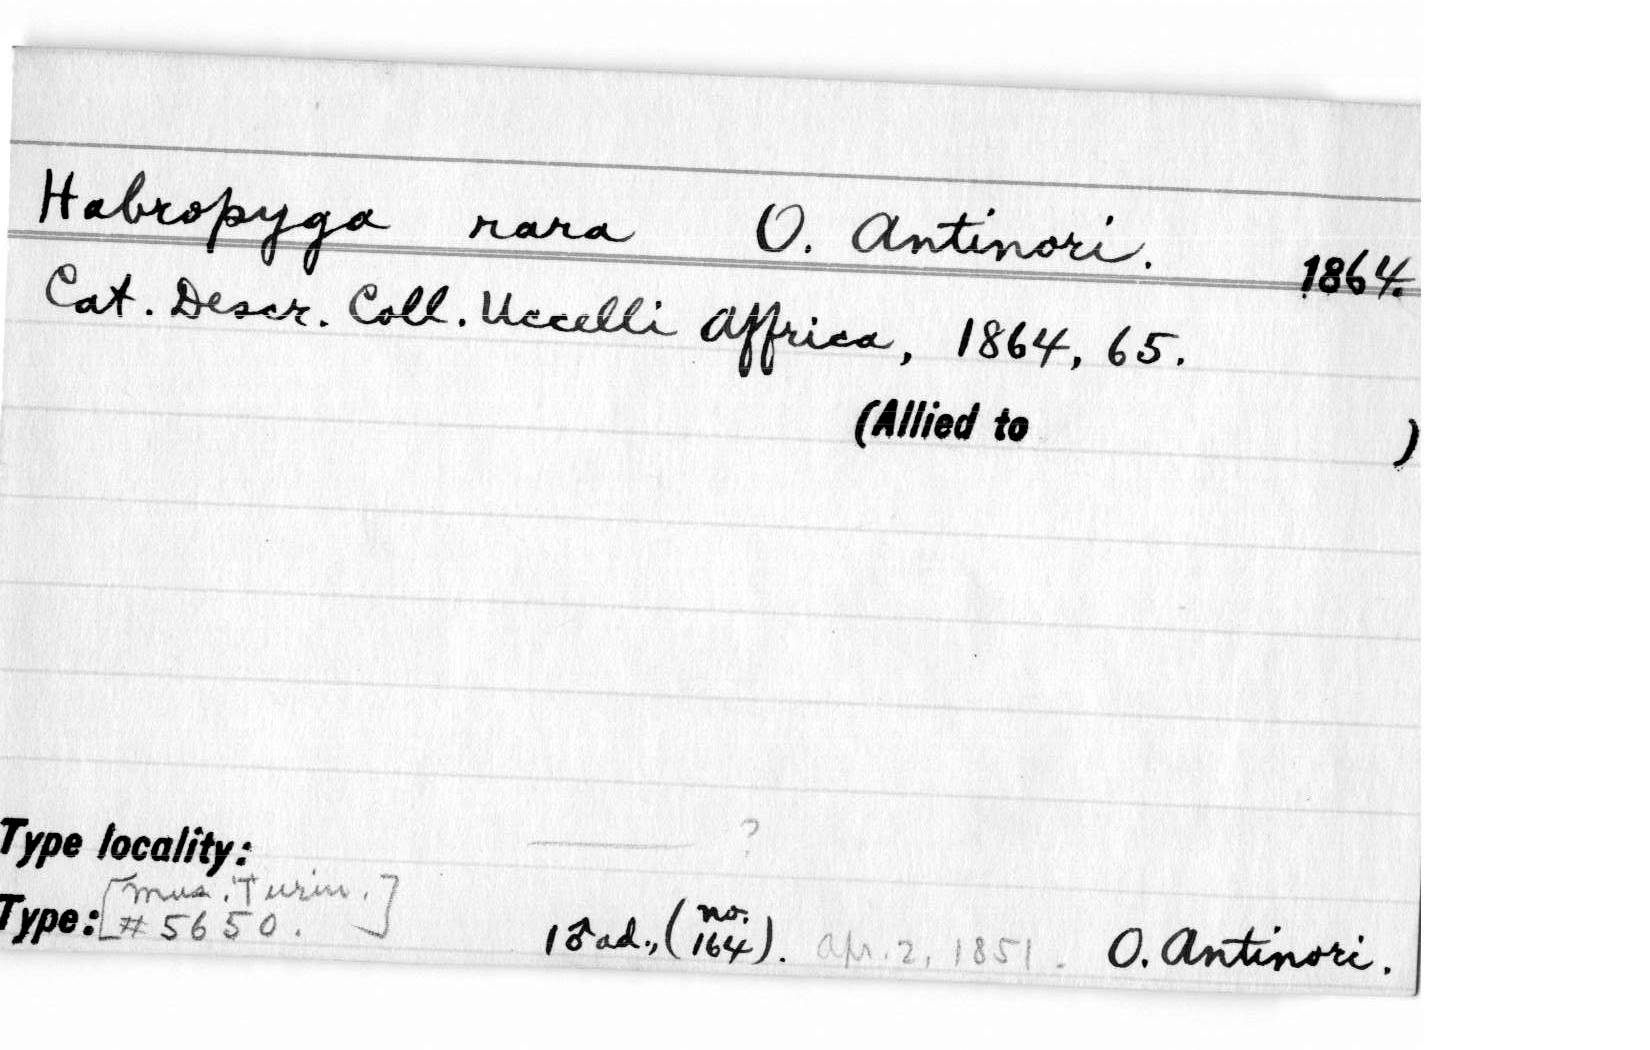 Habropyga rara O. Antinori. 1864.
Cat. Descr. Coll. Uccelli Affrica, 1864, 65.
(Allied to )
Type locality: ——— ?
Type: [Mus. Turin.
#5650.] 1♂ad., (no. 164). Apr. 2, 1851. O. Antinori.